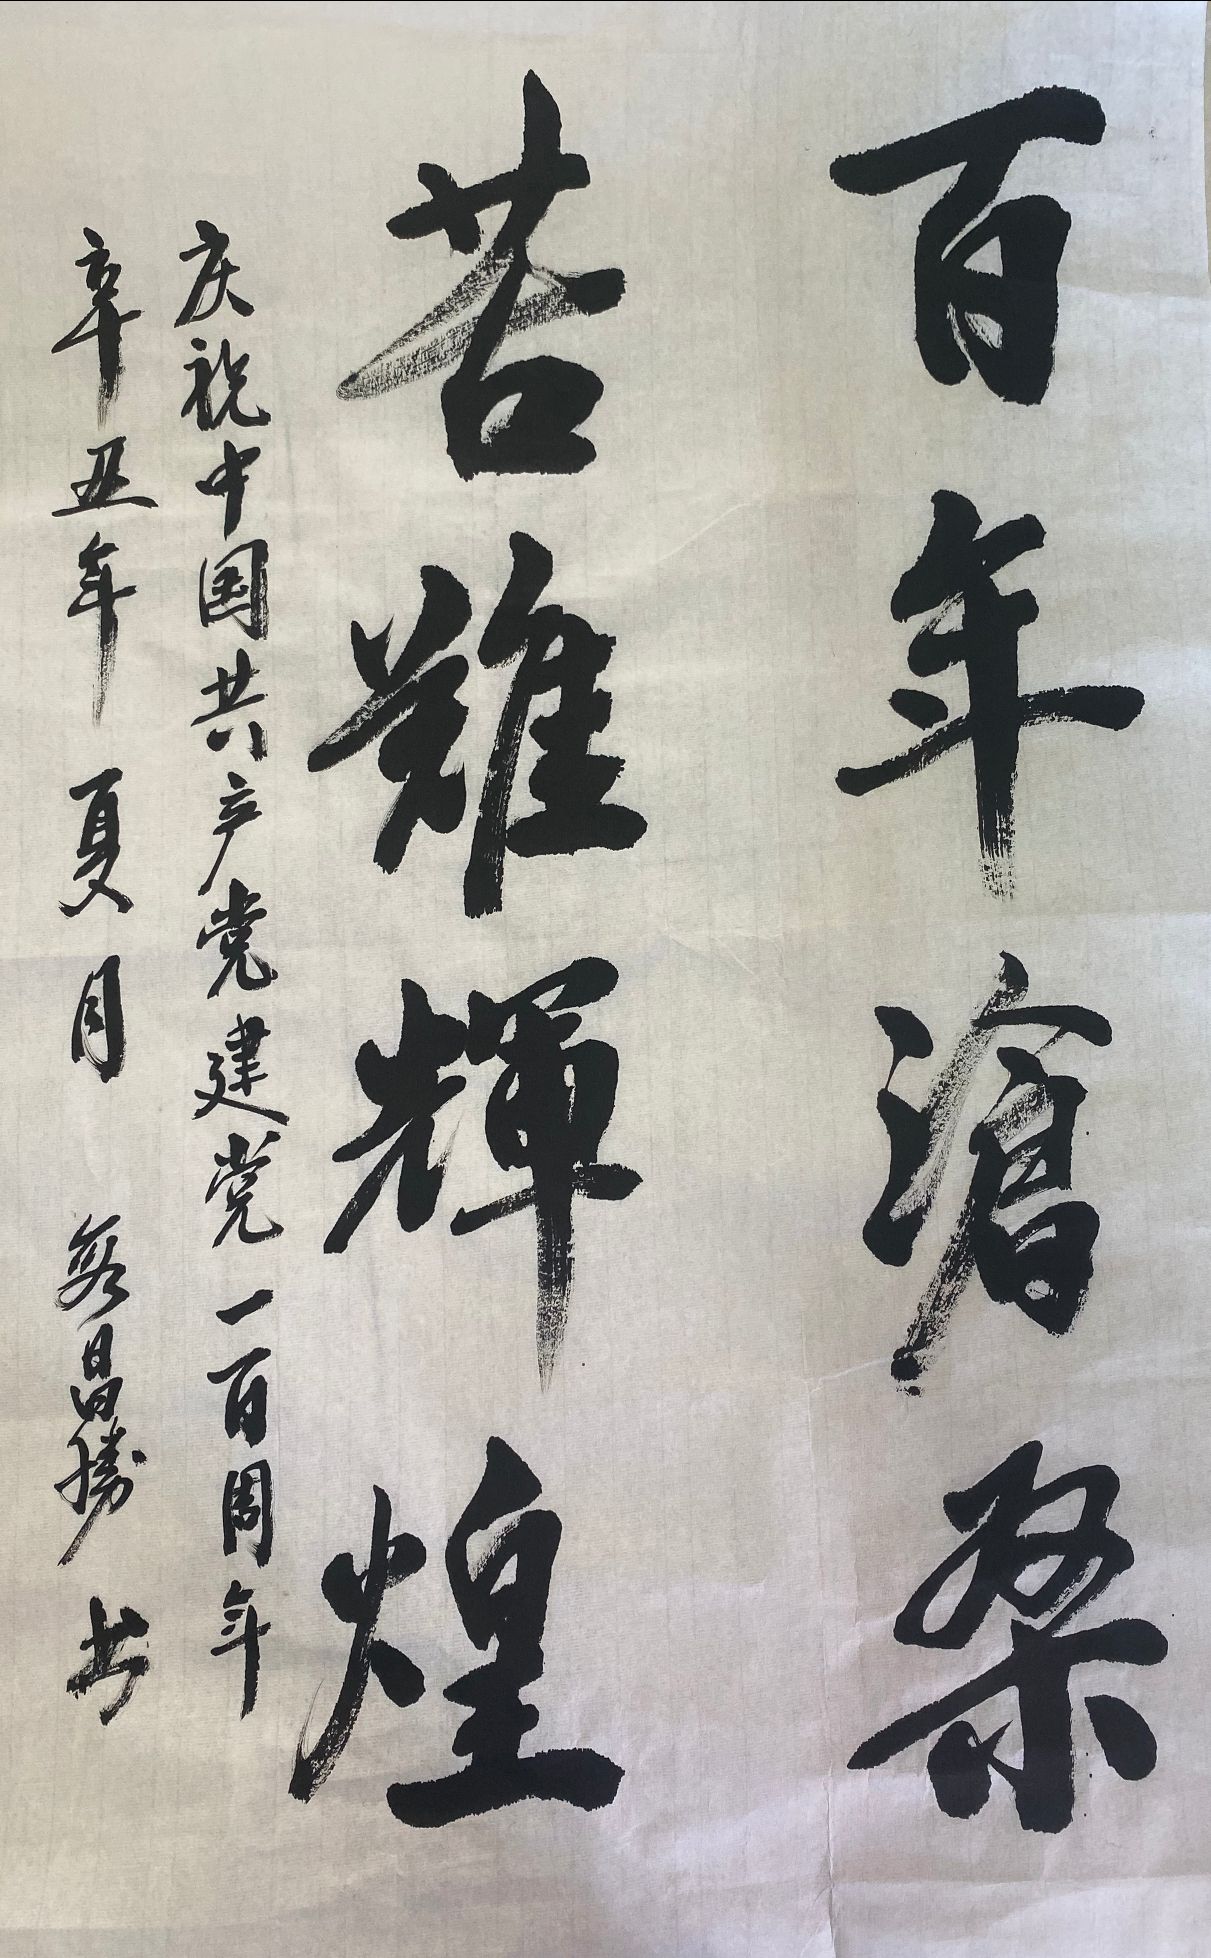 百年滄桑
苦難輝煌
庆祝中国共产党建党一百周年
辛丑年夏月 昌勝书